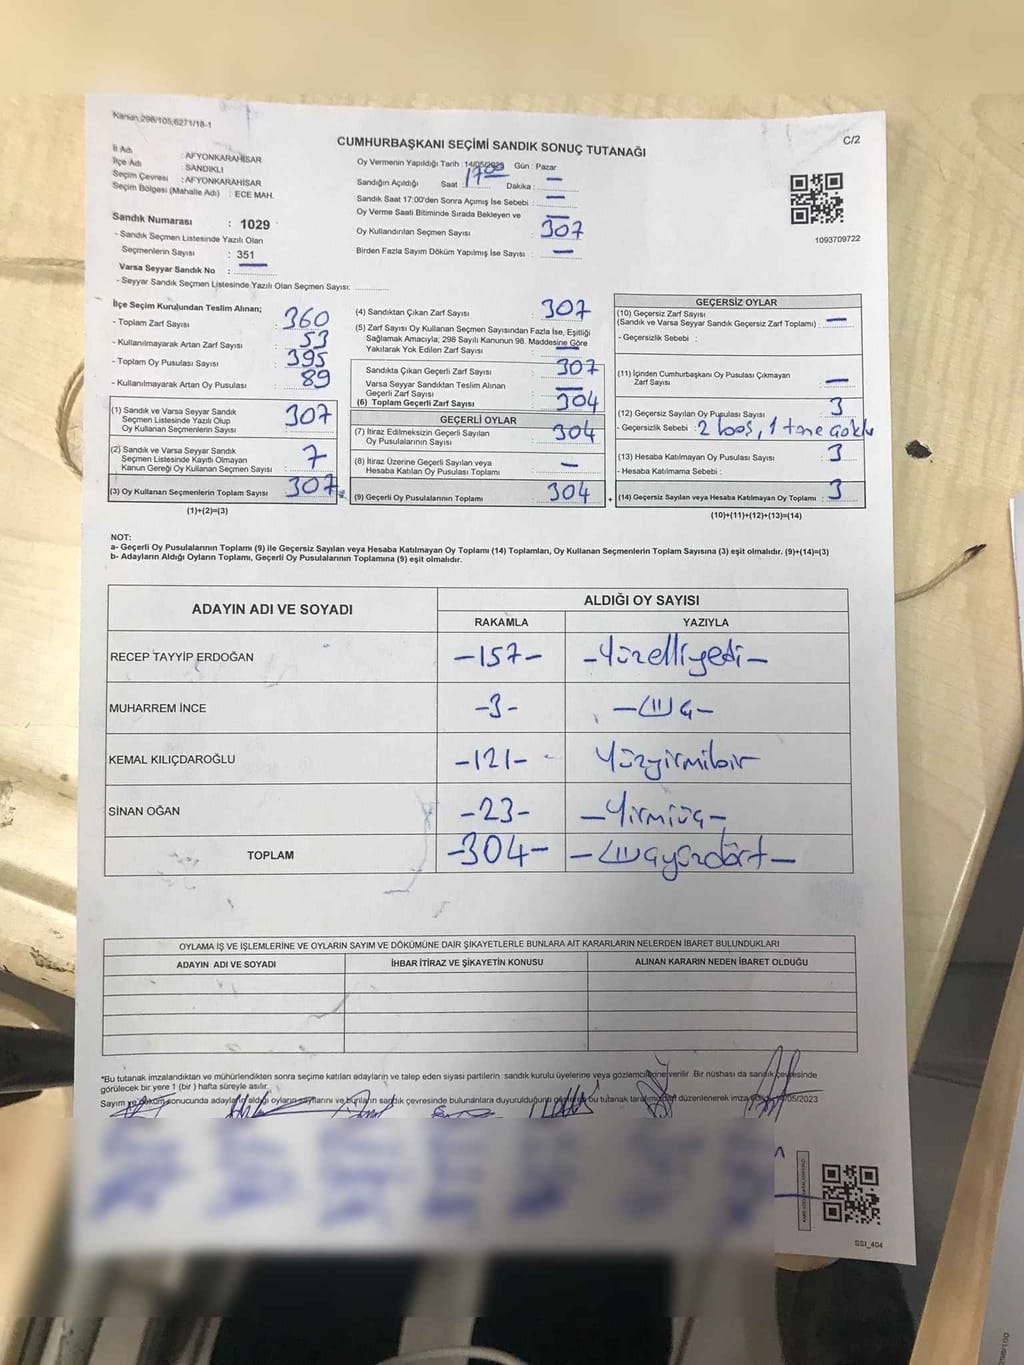 Kanun,298/105,6271/18-1
C/2
CUMHURBAŞKANI SEÇİMİ SANDIK SONUÇ TUTANAĞI
İl Adı : AFYONKARAHİSAR
İlçe Adı SANDIKLI
Seçim Çevresi : AFYONKARAHİSAR
Seçim Bölgesi (Mahalle Adı) : ECE MAH.
Sandık Numarası : 1029
- Sandık Seçmen Listesinde Yazılı Olan
Seçmenlerin Sayısı : 351
Varsa Seyyar Sandık No : —
- Seyyar Sandık Seçmen Listesinde Yazılı Olan Seçmen Sayısı:
Oy Vermenin Yapıldığı Tarih : 14/05/2023 Gün : Pazar
Sandığın Açıldığı Saat : 17 00 Dakika : —
Sandık Saat 17:00'den Sonra Açımış İse Sebebi : —
Oy Verme Saati Bitiminde Sırada Bekleyen ve
Oy Kullandırılan Seçmen Sayısı : 307
Birden Fazla Sayım Döküm Yapılmış İse Sayısı : —
1093709722
İlçe Seçim Kurulundan Teslim Alınan;
- Toplam Zarf Sayısı : 360
- Kullanılmayarak Artan Zarf Sayısı : 53
- Toplam Oy Pusulası Sayısı : 395
- Kullanılmayarak Artan Oy Pusulası : 89
(1) Sandık ve Varsa Seyyar Sandık
Seçmen Listesinde Yazılı Olup
Oy Kullanan Seçmenlerin Sayısı : 307
(2) Sandık ve Varsa Seyyar Sandık
Seçmen Listesinde Kayıtlı Olmayan
Kanun Gereği Oy Kullanan Seçmen Sayısı : 7
(3) Oy Kullanan Seçmenlerin Toplam Sayısı : 307
(1)+(2)=(3)
(4) Sandıktan Çıkan Zarf Sayısı : 307
(5) Zarf Sayısı Oy Kullanan Seçmen Sayısından Fazla İse, Eşitliği
Sağlamak Amacıyla; 298 Sayılı Kanunun 98. Maddesine Göre
Yakılarak Yok Edilen Zarf Sayısı : —
Sandıkta Çıkan Geçerli Zarf Sayısı : 307
Varsa Seyyar Sandıktan Teslim Alınan
Geçerli Zarf Sayısı : —
(6) Toplam Geçerli Zarf Sayısı : 304
GEÇERLİ OYLAR
(7) İtiraz Edilmeksizin Geçerli Sayılan
Oy Pusulalarının Sayısı : 304
(8) İtiraz Üzerine Geçerli Sayılan veya
Hesaba Katılan Oy Pusulası Toplamı : —
(9) Geçerli Oy Pusulalarının Toplamı : 304
GEÇERSİZ OYLAR
(10) Geçersiz Zarf Sayısı
(Sandık ve Varsa Seyyar Sandık Geçersiz Zarf Toplamı) : —
- Geçersizlik Sebebi :
(11) İçinden Cumhurbaşkanı Oy Pusulası Çıkmayan
Zarf Sayısı : —
(12) Geçersiz Sayılan Oy Pusulası Sayısı : 3
- Geçersizlik Sebebi : 2 boş, 1 tane çoklu
(13) Hesaba Katılmayan Oy Pusulası Sayısı : 3
- Hesaba Katılmama Sebebi :
+ (14) Geçersiz Sayılan veya Hesaba Katılmayan Oy Toplamı : 3
(10)+(11)+(12)+(13)=(14)
NOT:
a- Geçerli Oy Pusulalarının Toplamı (9) ile Geçersiz Sayılan veya Hesaba Katılmayan Oy Toplamı (14) Toplamları, Oy Kullanan Seçmenlerin Toplam Sayısına (3) eşit olmalıdır. (9)+(14)=(3)
b- Adayların Aldığı Oyların Toplamı, Geçerli Oy Pusulalarının Toplamına (9) eşit olmalıdır.
ADAYIN ADI VE SOYADI
ALDIĞI OY SAYISI
RAKAMLA YAZIYLA
RECEP TAYYİP ERDOĞAN -157- -Yüzelliyedi-
MUHARREM İNCE -3- -Üç-
KEMAL KILIÇDAROĞLU -121- Yüzyirmibir
SİNAN OĞAN -23- -Yirmiüç-
TOPLAM -304- -Üçyüzdört-
OYLAMA İŞ VE İŞLEMLERİNE VE OYLARIN SAYIM VE DÖKÜMÜNE DAİR ŞİKAYETLERLE BUNLARA AİT KARARLARIN NELERDEN İBARET BULUNDUKLARI
ADAYIN ADI VE SOYADI İHBAR İTİRAZ VE ŞİKAYETİN KONUSU ALINAN KARARIN NEDEN İBARET OLDUĞU
*Bu tutanak imzalandıktan ve mühürlendikten sonra seçime katılan adayların ve talep eden siyasi partilerin sandık kurulu üyelerine veya gözlemcilerine verilir. Bir nüshası da sandık çevresinde
görülecek bir yere 1 (bir ) hafta süreyle asılır.
Sayım ve döküm sonucunda adayların aldığı oyların sayılarını ve bunların sandık çevresinde bulunanlara duyurulduğunu gösterir bu tutanak tarafımızdan düzenlenerek imza /05/2023
SSI_404